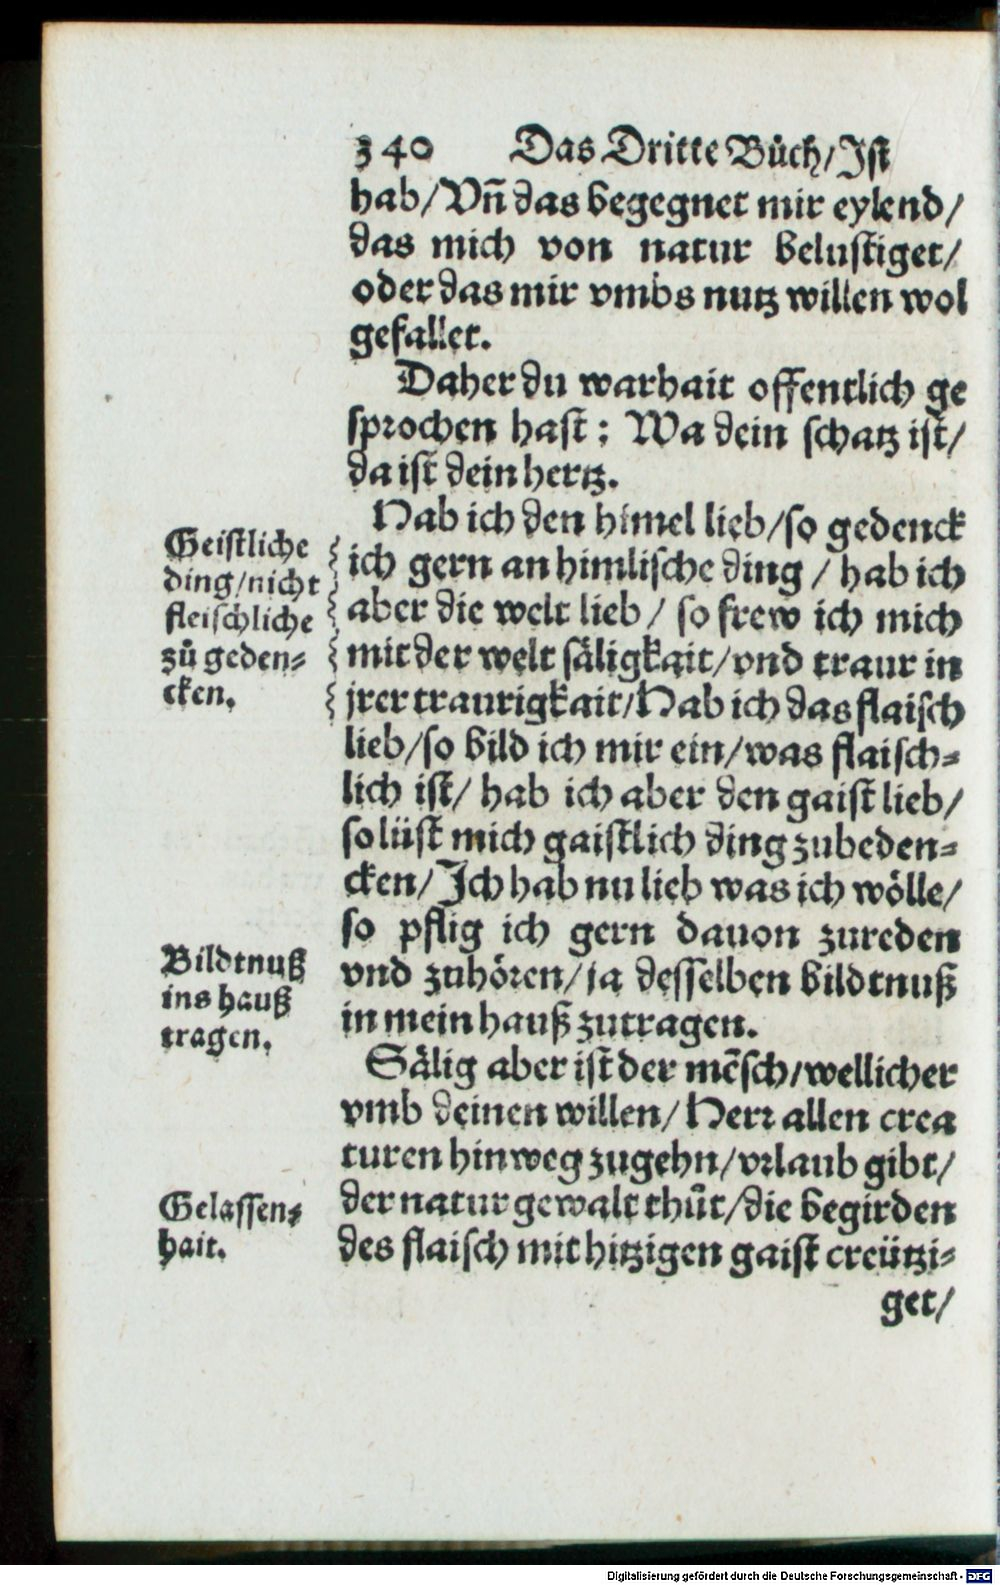 340 Das Dritte Bůch/Ist
hab/Vn̄ das begegnet mir eylend/
das mich von natur belustiget/
oder das mir vmbs nutz willen wol
gefallet.
Daher du warhait offentlich ge
sprochen hast: Wa dein schatz ist/
da ist dein hertz.
Hab ich den himel lieb/so gedenck
ich gern an himlische ding / hab ich
aber die welt lieb / so frew ich mich
mit der welt säligkait/vnd traur in
jrer traurigkait/Hab ich das flaisch
lieb/so bild ich mir ein/was flaisch=
lich ist/ hab ich aber den gaist lieb/
so lüst mich gaistlich ding zubeden=
cken/Ich hab nu lieb was ich wölle/
so pflig ich gern dauon zureden
vnd zuhören/ja desselben bildtnuß
in mein hauß zutragen.
Sälig aber ist der mēsch/wellicher
vmb deinen willen/Herr allen crea
turen hinweg zugehn/vrlaub gibt/
der natur gewalt thůt/die begirden
des flaisch mit hitzigen gaist creützi=
get/
Geistliche
ding/nicht
fleischliche
zů geden=
cken.
Bildtnuß
ins hauß
tragen.
Gelassen=
hait.
Digitalisierung gefördert durch die Deutsche Forschungsgemeinschaft - DFG